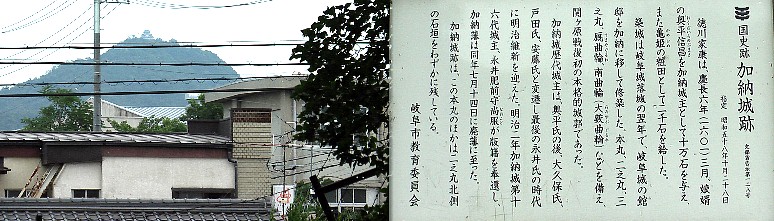 国史跡 加納城跡
指定 昭和五十八年十月二十八日
徳川家康は、慶長六年(一六〇一)三月、娘婿
の奥平信昌を加納城主として十万石を与え、
また亀姫の粧田として二千石を給した。
築城は岐阜城落城の翌年で、岐阜城の館
邸を加納に移して修築した。本丸、二之丸、三
之丸、厩曲輪、南曲輪(大藪曲輪)などを備え、
関ヶ原戦後初の本格的城郭であった。
加納城歴代城主は、奥平氏の後、大久保氏、
戸田氏、安藤氏と変遷し、最後の永井氏の時代
に明治維新を迎えた。明治二年加納城第十
六代城主、永井肥前守尚服が版籍を奉還し、
加納藩は同年七月十四日に廃藩に至った。
加納城跡は、この本丸のほかは二之丸北側
の石垣をわずかに残している。
岐阜市教育委員会